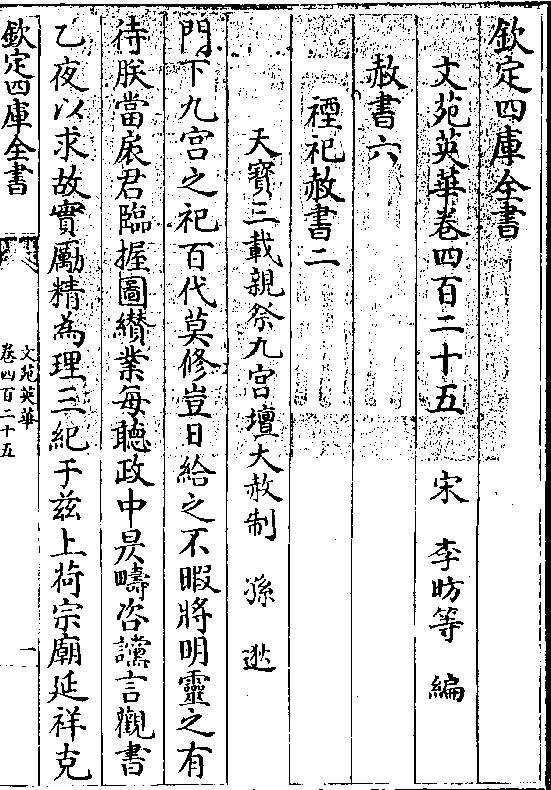 欽定四庫全書
文苑英華卷四百二十五　宋　李昉等　編
赦書六
禋祀赦書二
天寳三載親祭九宫壇大赦制　孫逖
門下九宫之祀百代莫修豈日給之不暇將明靈之有
待朕當扆君臨握圖纘業每聴政中昃疇咨讜言觀書
乙夜以求故實勵精為理三紀于兹上荷宗廟延祥克
欽定四庫全書
文苑英華
卷四百二十五
一